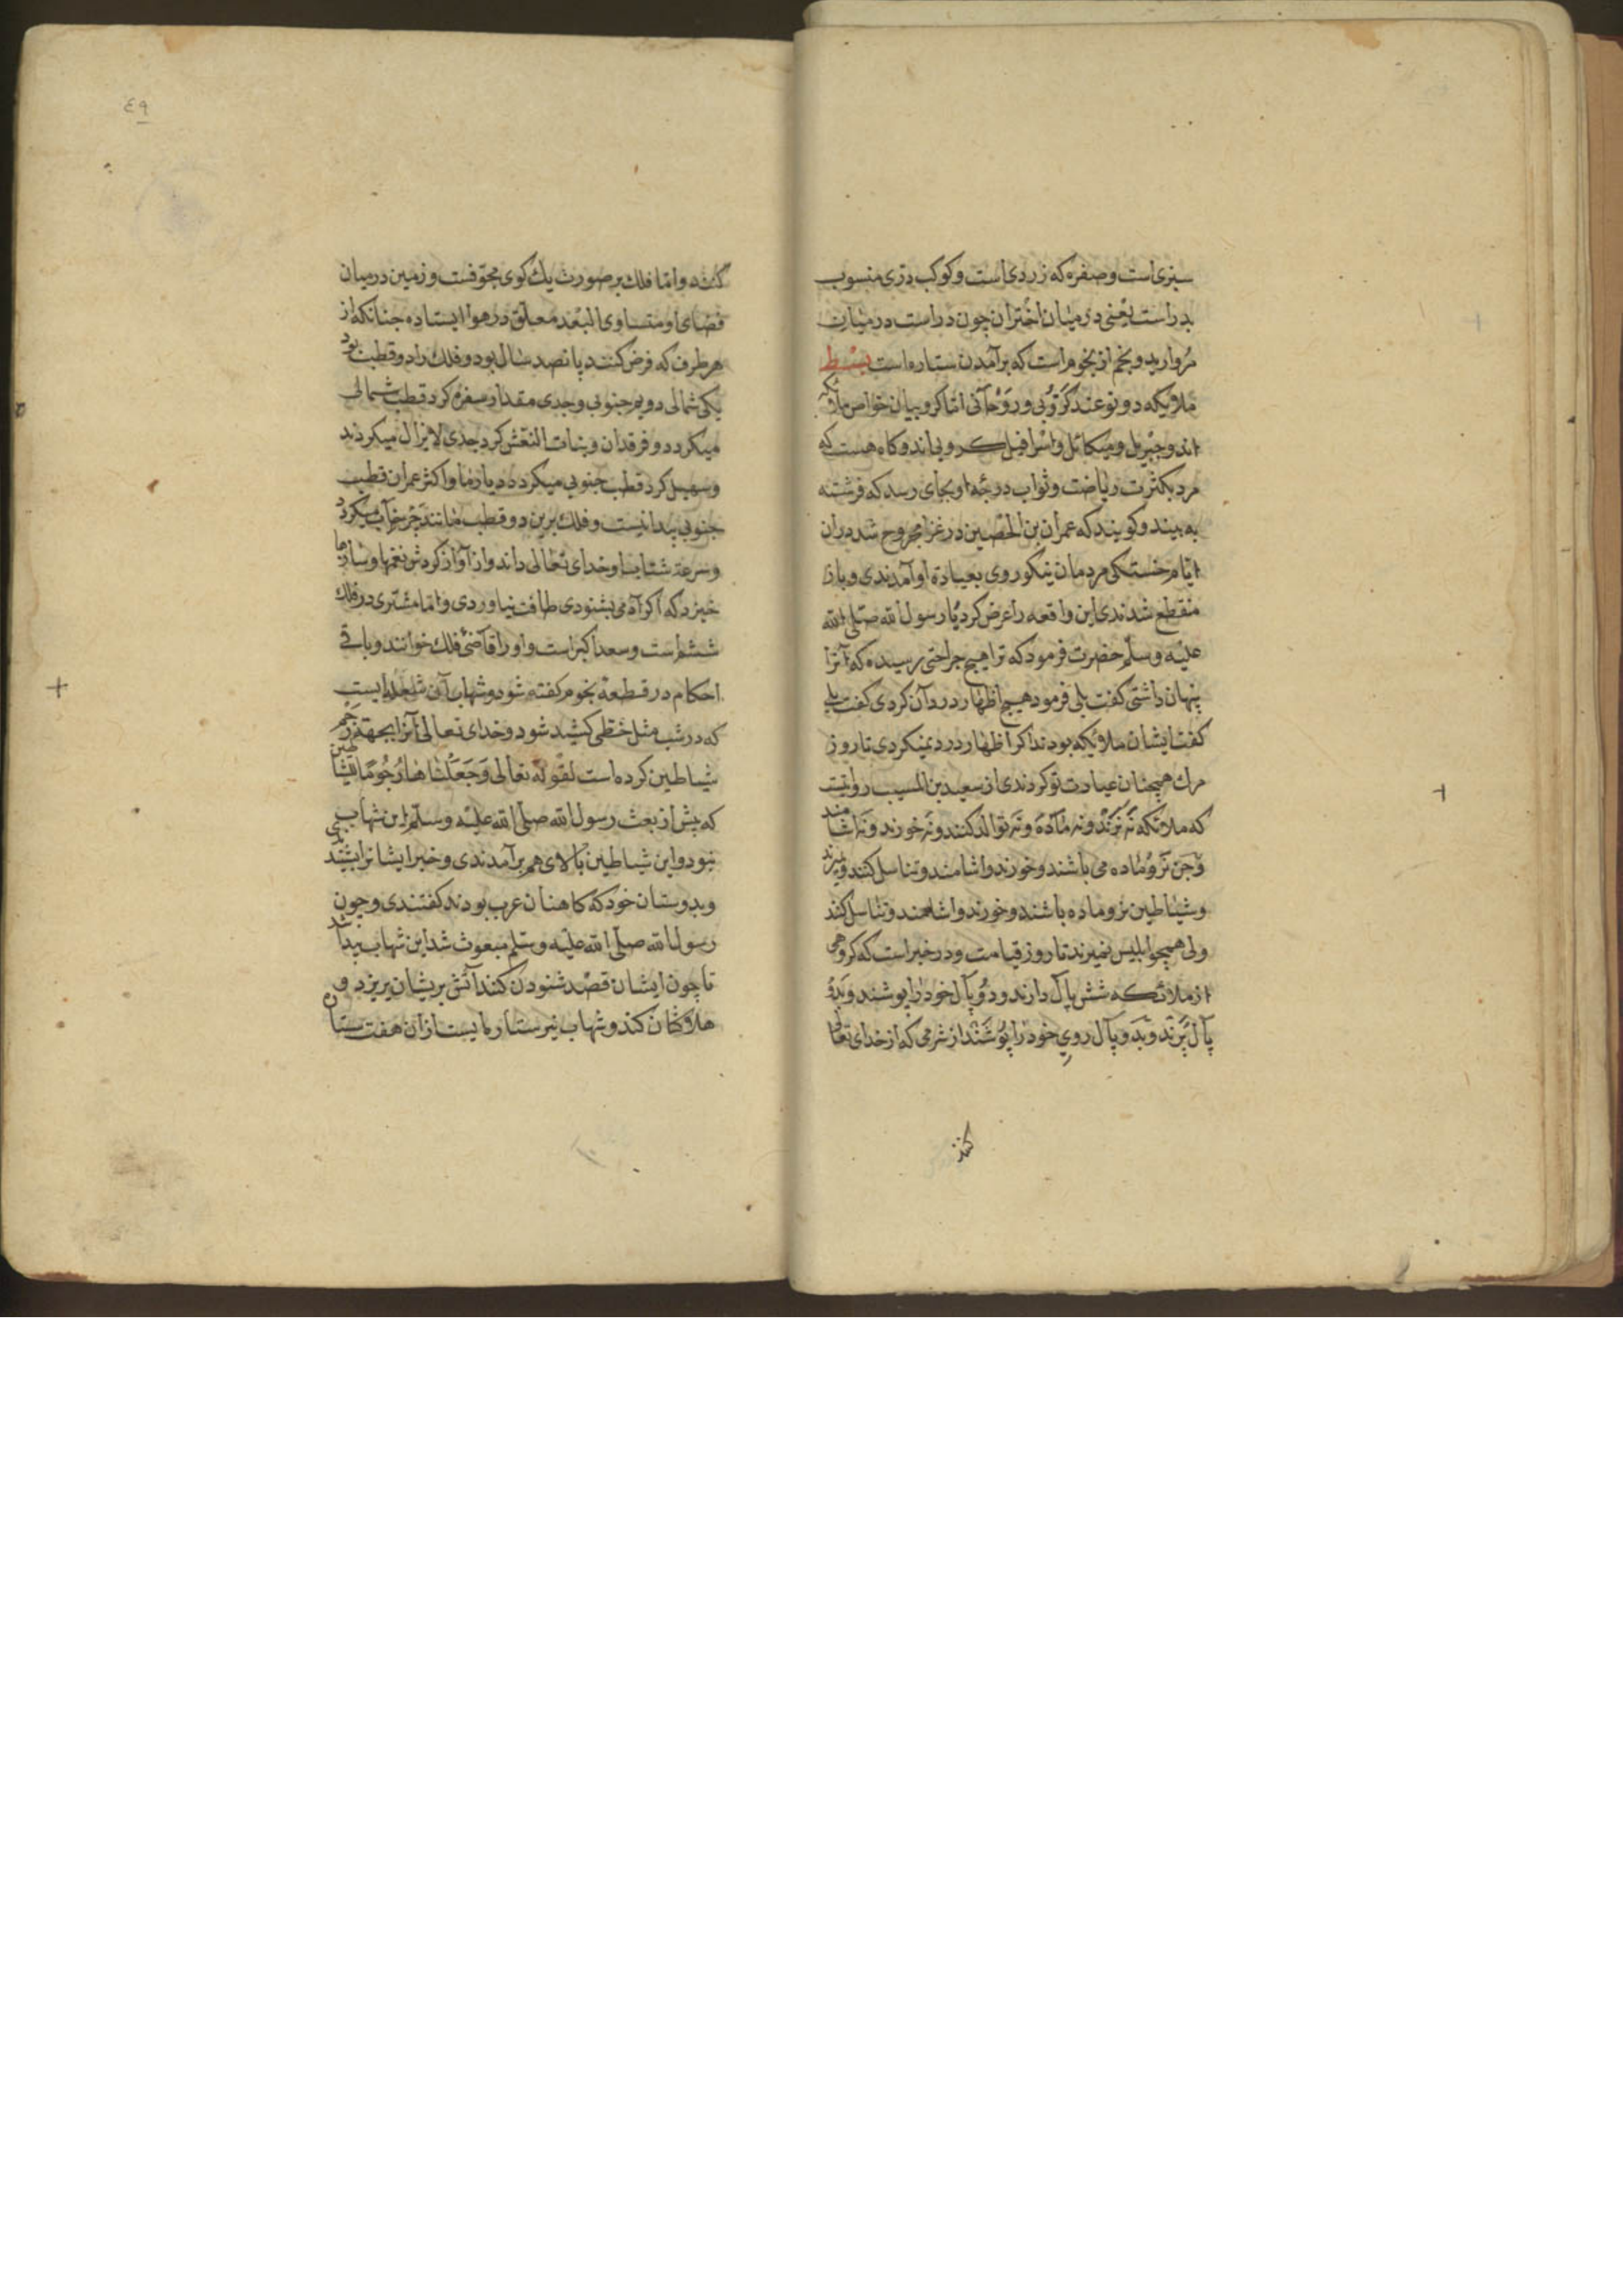 سبزی است و صفره که زردی است و کوکب درّی منسوب
بدر است یعنی در میان اختران چون در است در میان
مروارید و نجم از نجوم است که برآمدن ستاره است بسط
ملایکه دو نوعند کرّوبی و روحانی امّا کروبیان خواص ملائکه
اند و جبریل و میکائل و اسرافیل کروبی اند و کاه هست که
مرد بکثرت ریاضت و ثواب درجه او بجای رسد که فرشته
به بیند و کویند که عمران بن الحصین در غزا مجروح شد دران
ایام خستکی مردمان نیکوروی بعیادة او آمدندی و باز
منقطع شدندی این واقعه را عرض کرد یا رسول الله صلی الله
علیه و سلّم حضرت فرمود که ترا هیچ جراحتی رسیده که آنرا
پنهان داشتی کفت بلی فرمود هیچ اظهار درد آن کردی کفت بلی
کفت ایشان ملائکه بودند اکر اظهار درد نمیکردی تا روز
مرك همچنان عیادت تو کردندی از سعید بن المسیب روایتست
که ملائکه نه نرند و نه ماده و نه توالد کنند و نه خورند و نه اشامند
و جن نر و ماده می باشند و خورند و اشامند و تناسل کنند و میرند
و شیاطین نر و ماده باشند و خورند و اشامند و تناسل کنند
ولی همچو ابلیس نمیرند تا روز قیامت و در خبر است که کروهی
از ملائکه شش پال دارند و دو پال خود را پوشند و بدو
پال پرند و بدو پال روی خود را پوشند از شرمی که از خدای تعالی
کنند
٤٩
کنند و امّا فلك بر صورت یك کوی مجوّفست و زمین در میان
فضای او متساوی البُعد معلّق در هوا ایستاده جنانکه از
هر طرف که فرض کنند پانصد سال بود و فلك را دو قطب بود
یکی شمالی دویم جنوبی و جدی مقدار سفره کرد قطب شمالی
میکردد و فرقدان و بنات النعش کرد جدی لایزال میکردند
و سهیل کرد قطب جنوبی میکردد در دیار ما و اکثر عمران قطب
جنوبی پیدا نیست و فلك برین دو قطب مانند چرخ آب میکردد
و سرعة شتاب او خدای تعالی داند و از آواز کردش نغمها و سازها
خیزد که اکر آدمی بشنودی طاقت نیاوردی و امّا مشتری در فلك
ششم است و سعد اکبر است و او را قاضی فلك خوانند و باقی
احکام در قطعۀ نجوم کفته شود و شهاب آن شعلۀ ایست
که در شب مثل خطی کشید شود و خدای تعالی آنرا بجهة رجم
شیاطین کرده است لقوله تعالی وَجَعَلْنَاهَا رُجُومًا لِلشَّیَاطین
که پیش از بعث رسول الله صلی الله علیه و سلّم این شهاب
نبود و این شیاطین بالای هم برآمدندی و خبر ایشان را بشنیدندی
و بدوستان خود که کاهنان عرب بودند کفتندی و چون
رسول الله صلی الله علیه و سلم مبعوث شد این شهاب پیدا شد
تا چون ایشان قصد شنودن کنند آتش بر ایشان بریزد و
هلاکشان کند و شهاب نیز ستاره ایست از آن هفت ستاره